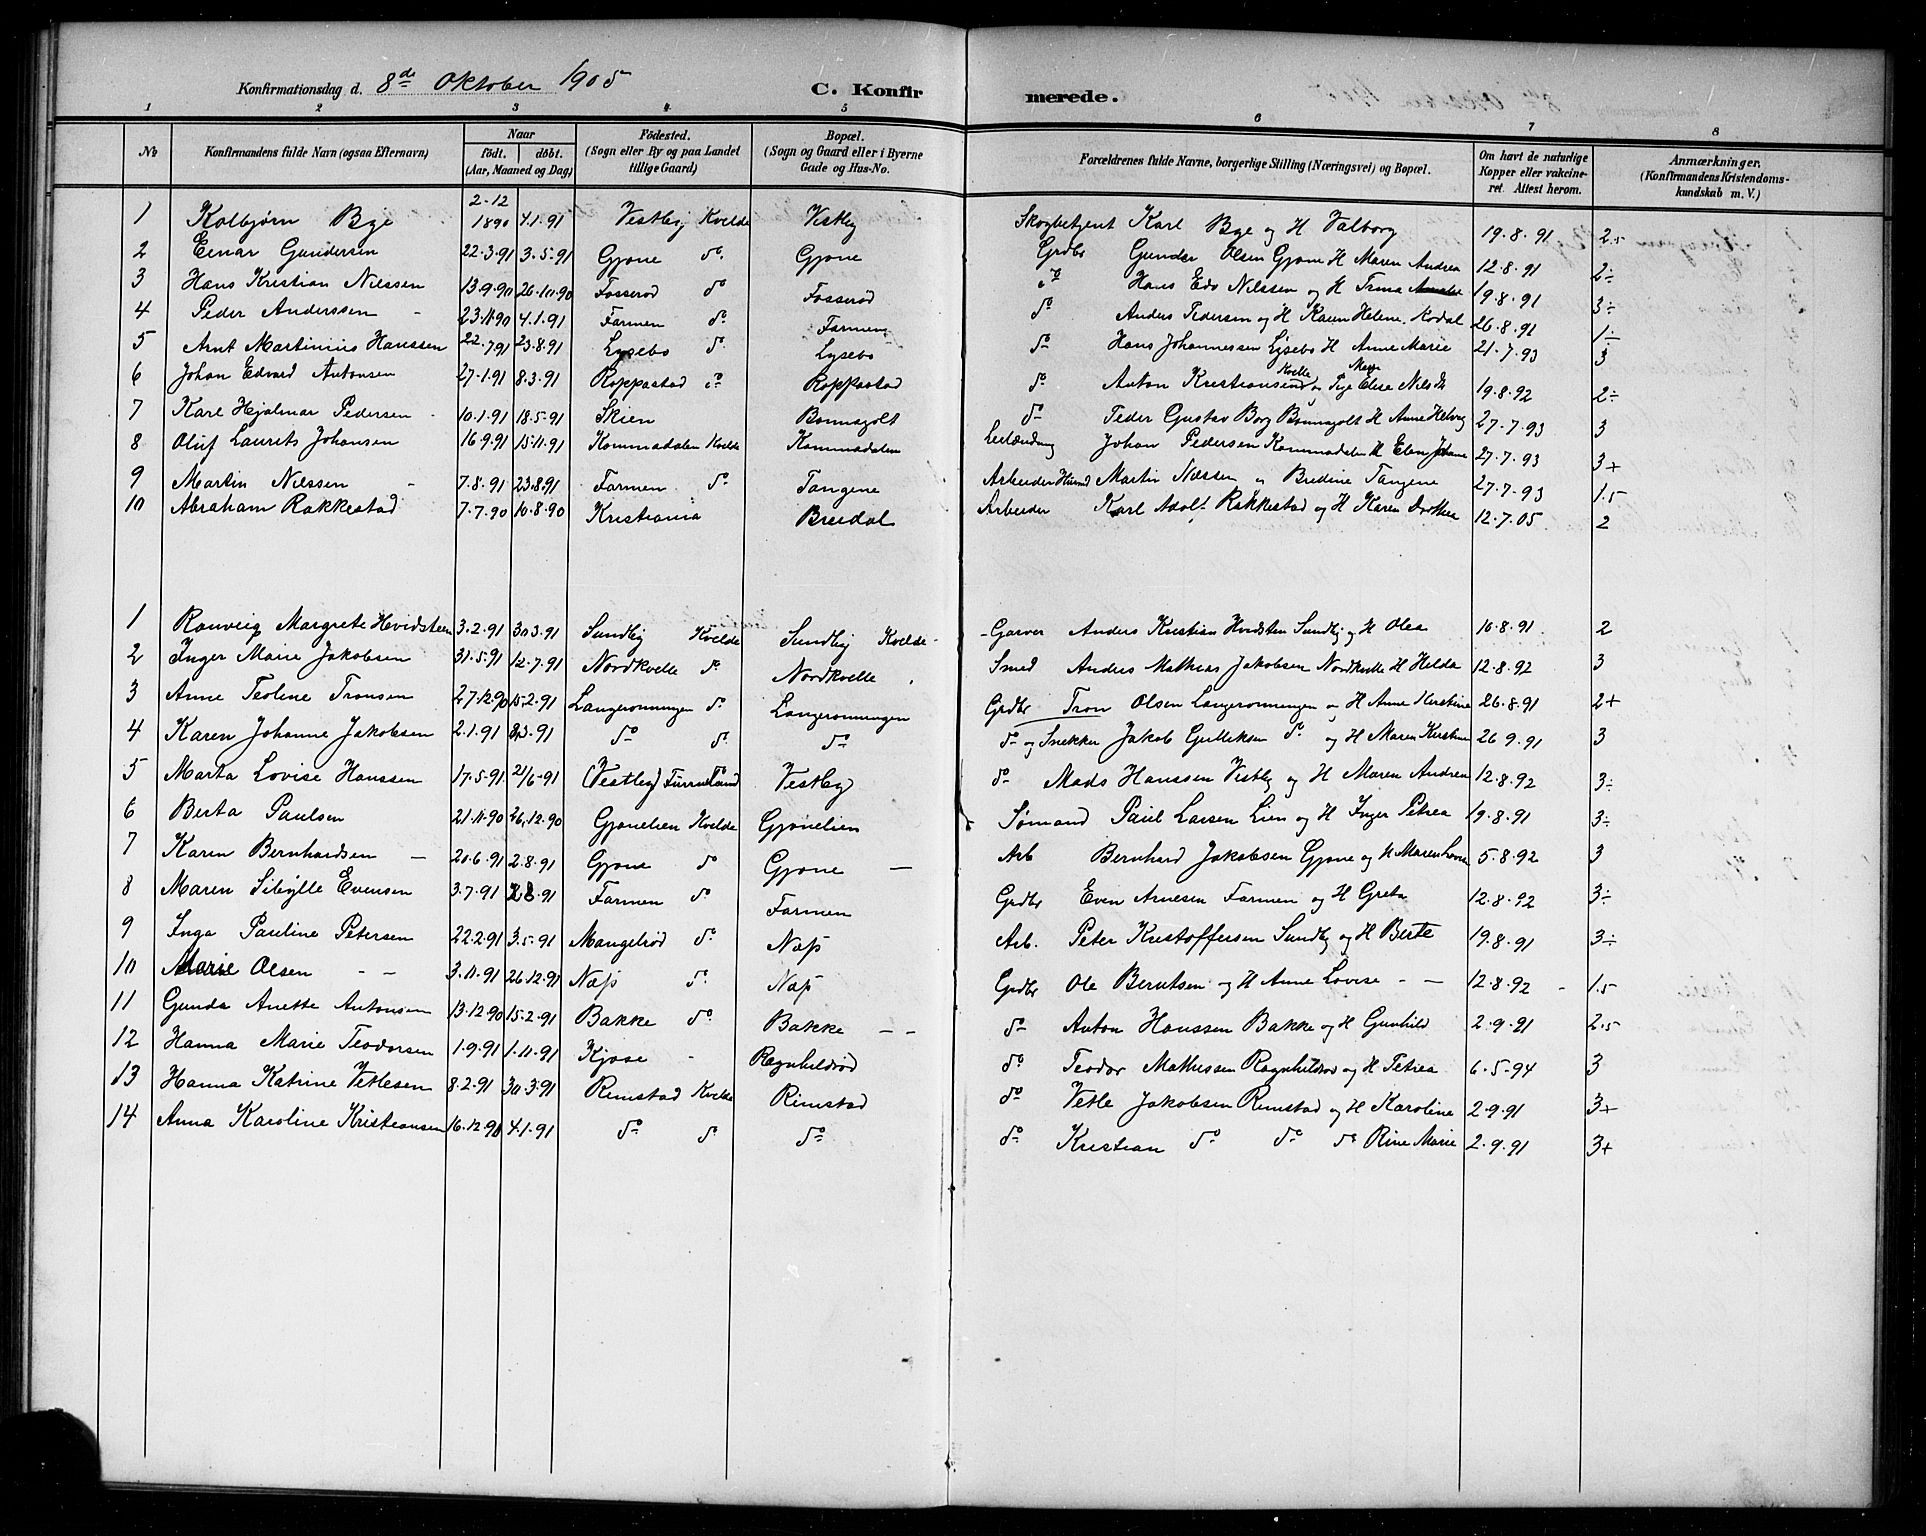 Konfirmationsdag d. 8de Oktober 1905 C. Konfirmerede.
1 2 3 4 5 6 7 8
No Konfirmandens fulde Navn (ogsaa Efternavn) Naar født. døbt. (Aar, Maaned og Dag) Fødested. (Sogn eller By og paa Landet tillige Gaard) Bopæl. (Sogn og Gaard eller i Byerne Gade og Hus-No. Forældrenes fulde Navne, borgerlige Stilling (Næringsvei) og Bopæl. Om havt de naturlige Kopper eller vakcineret. Attest herom. Anmærkninger. (Konfirmandens Kristendomskundskab m. V.)
1 Kolbjørn Bye 2-12 1890 4.1.91 Vestby Kvelde Vestby Skogbetjent Karl Bye og H Valborg 19.8.91 2.5
2 Einar Gundersen 22.3.91 3.5.91 Gjone do Gjone Grdbr Gunder Olsen Gjone H Maren Andrea 12.8.91 2÷
3 Hans Kristian Nilssen 13.9.90 26.10.90 Fosserød do Fosserød do Hans Edv Nilssen og H Trina 19.8.91 3÷
4 Peder Anderssen - 23.11.90 4.1.91 Farmen do Farmen do Anders Pedersen og H Karen Helene Kodal 26.8.91 1÷
5 Arnt Martinius Hanssen 22.7.91 23.8.91 Lysebo do Lysebo do Hans Johannessen Lysebo H Anne Marie 21.7.93 3
6 Johan Edvard Antonsen 27.1.91 8.3.91 Roppastad do Roppastad do Anton Kristiansen Kvelle og Pige Elise Marie Nilsdt 19.8.92 2÷
7 Karl Hjalmar Pedersen - 10.1.91 18.5.91 Skien Bonnegolt do Peder Gustav Borg Bonnegolt H Anne Helvig 27.7.93 3
8 Oluf Laurits Johansen 16.9.91 15.11.91 Kommadalen Kvelde Kommadalen Leilænding Johan Pedersen Kommadalen H Elen Johanne 27.7.93 3+
9 Martin Nilssen - 7.8.91 23.8.91 Farmen do Tangene Arbeider Husmd Martin Nilssen og Bredine Tangene 27.7.93 1.5
10 Abraham Rakkestad 7.7.90 10.8.90 Kristiania Breidal Arbeider Karl Adolf Rakkestad og H Karen Dorthea 12.7.05 2
1 Ranveig Margrete Hvidsteen 3.2.91 30.3.91 Sundby Kvelde Sundby Kvelde - Garver Anders Kristian Hvidsten Sundby og H Olea 10.8.91 2
2 Inger Marie Jakobsen 31.5.91 12.7.91 Nordkvelle do Nordkvelle Smed Anders Mathias Jakobsen Nordkvelle H Helda 12.8.92 3
3 Anne Teoline Tronsen 27.12.90 15.2.91 Langerønningen do Langerønningen Grdbr Tron Olsen Langerønningen og H Anne Kirstine 26.8.91 2+
4 Karen Johanne Jakobsen 2.1.91 8.3.91 do do do do og Snekker Jakob Gulliksen do og H Maren Kirstine 26.9.91 3
5 Marta Lovise Hanssen 17.5.91 21/6-91 (Vestby) Furreland do Vestby do Mads Hanssen Vestby og H Maren Andrea 12.8.92 3÷
6 Berta Paulsen 21.11.90 26.12.90 Gjonelien Kvelde Gjonelien Sømand Paul Larsen Lien og H Inger Petrea 19.8.91 3÷
7 Karen Bernhardsen - 20.6.91 2.8.91 Gjone do Gjone - Arb Bernhard Jakobsen Gjone og H Maren Lovise 5.8.92 3
8 Maren Sibylle Evensen 3.7.91 2.8.91 Farmen do Farmen Grdbr Even Arnesen Farmen og H Greta 12.8.92 3÷
9 Inga Pauline Petersen 22.2.91 3.5.91 Mangelrød do Næss Arb. Peter Kristoffersen Sundby og H Berte 19.8.91 3÷
10 Marie Olsen - - 3.11.91 26.12.91 Næss do Næss Grdbr Ole Berntsen og H Anne Lovise - - 12.8.92 - 1.5
11 Gunda Anette Antonsen 13.12.90 15.2.91 Bakke do Bakke - - do Anton Hanssen Bakke og H Gunhild 2.9.91 2.5
12 Hanna Marie Teodorsen 1.9.91 1.11.91 Kjose - Ragnhildrød do Teodor Mathissen Ragnhildrød og H Petrea 6.5.94 3
13 Hanna Katrine Vetlesen 8.2.91 30.3.91 Rimstad Kvelde Rimstad do Vetle Jakobsen Rimstad og H Karoline 2.9.91 3+
14 Anna Karoline Kristiansen 16.12.90 4.1.91 do do do do Kristian do do do Rine Marie 2.9.91 3+